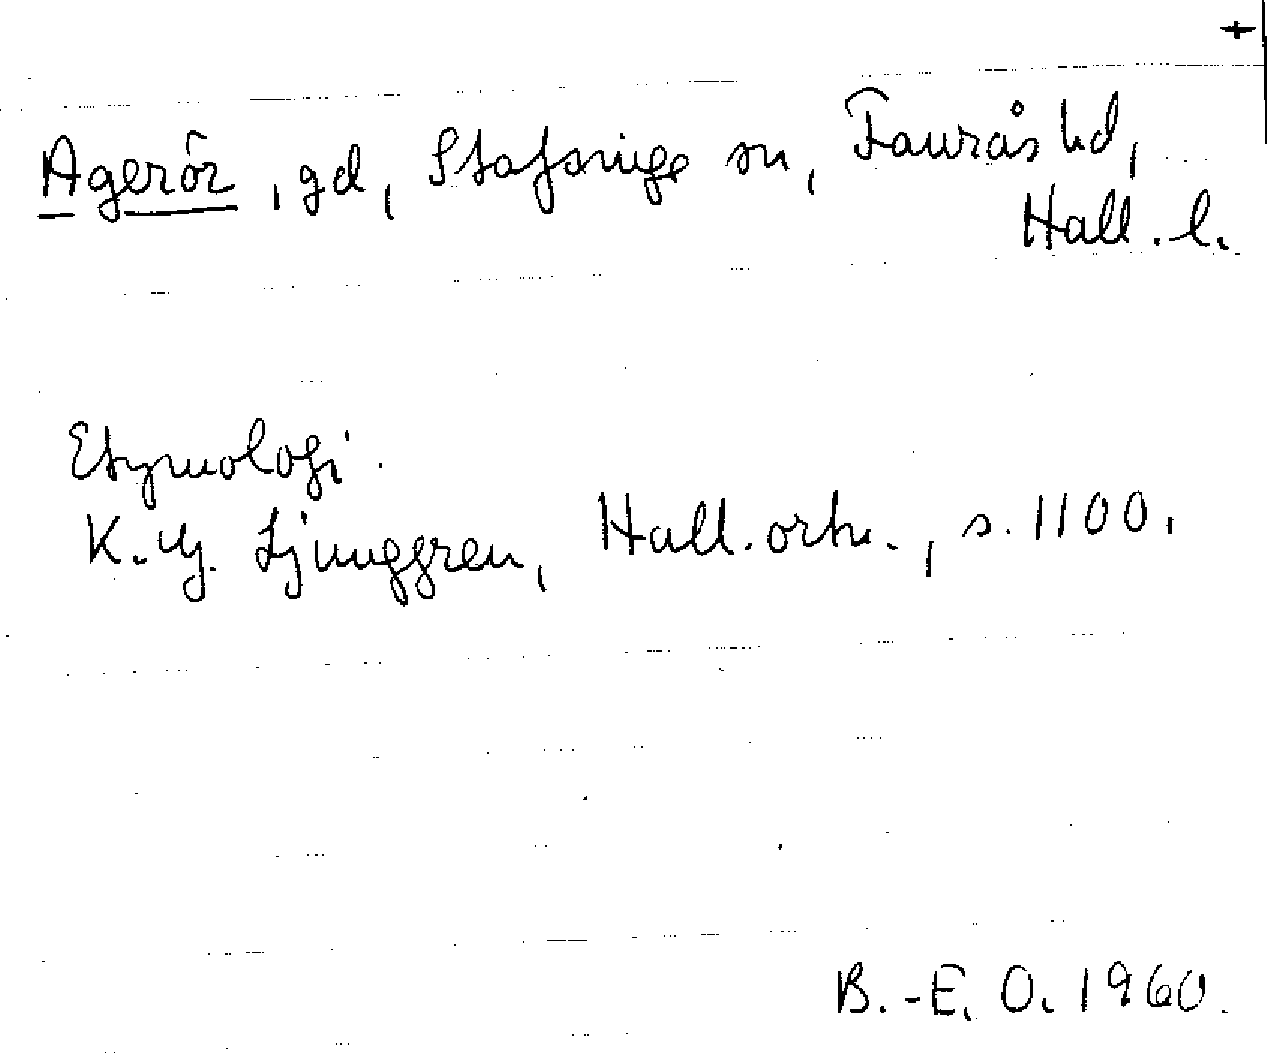 +
Agerör, gd, Stafsinge sn, Faurås hd,
Hall. l.
Etymologi.
K.G. Ljunggren, Hall. ortn., s. 1100.
B.-E. O. 1960.